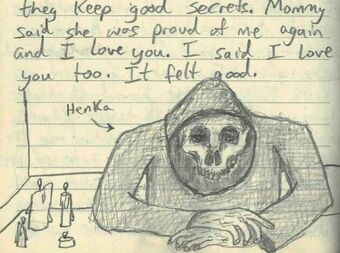 they keep good secrets. Mommy
said she was proud of me again
and I love you. I said I love
you too. It felt good.
Henka